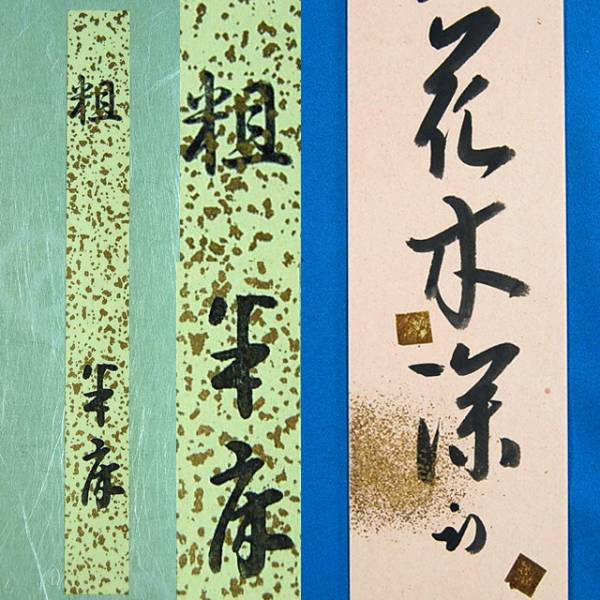 粗
半床
粗
半床
花水深